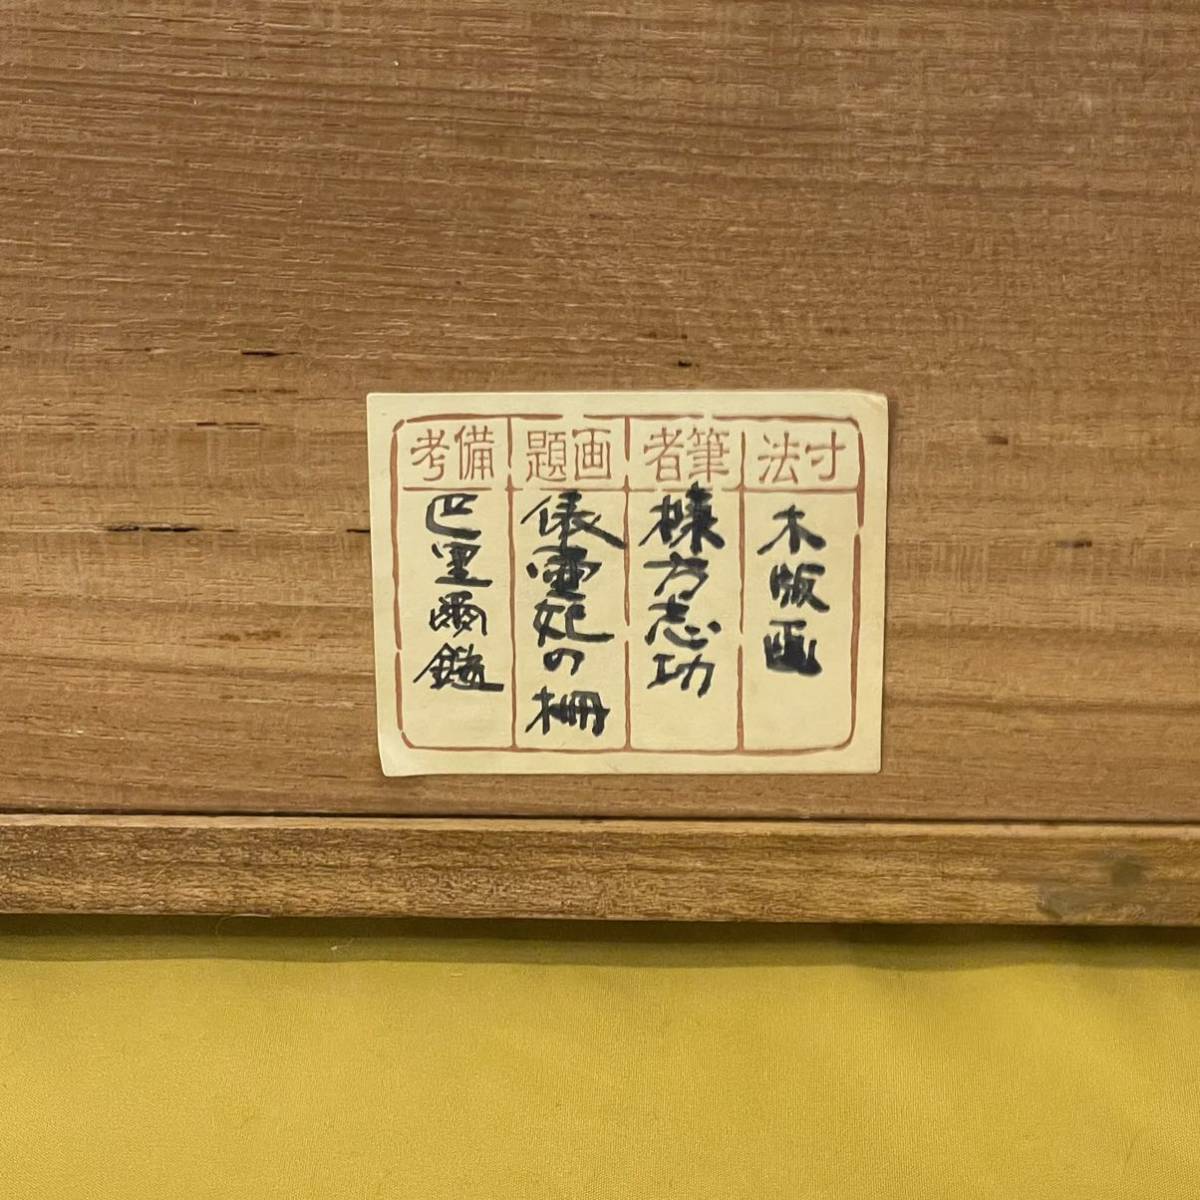 寸法
木版画
筆者
棟方志功
画題
俵雪妃の柵
備考
巴里爾鐘